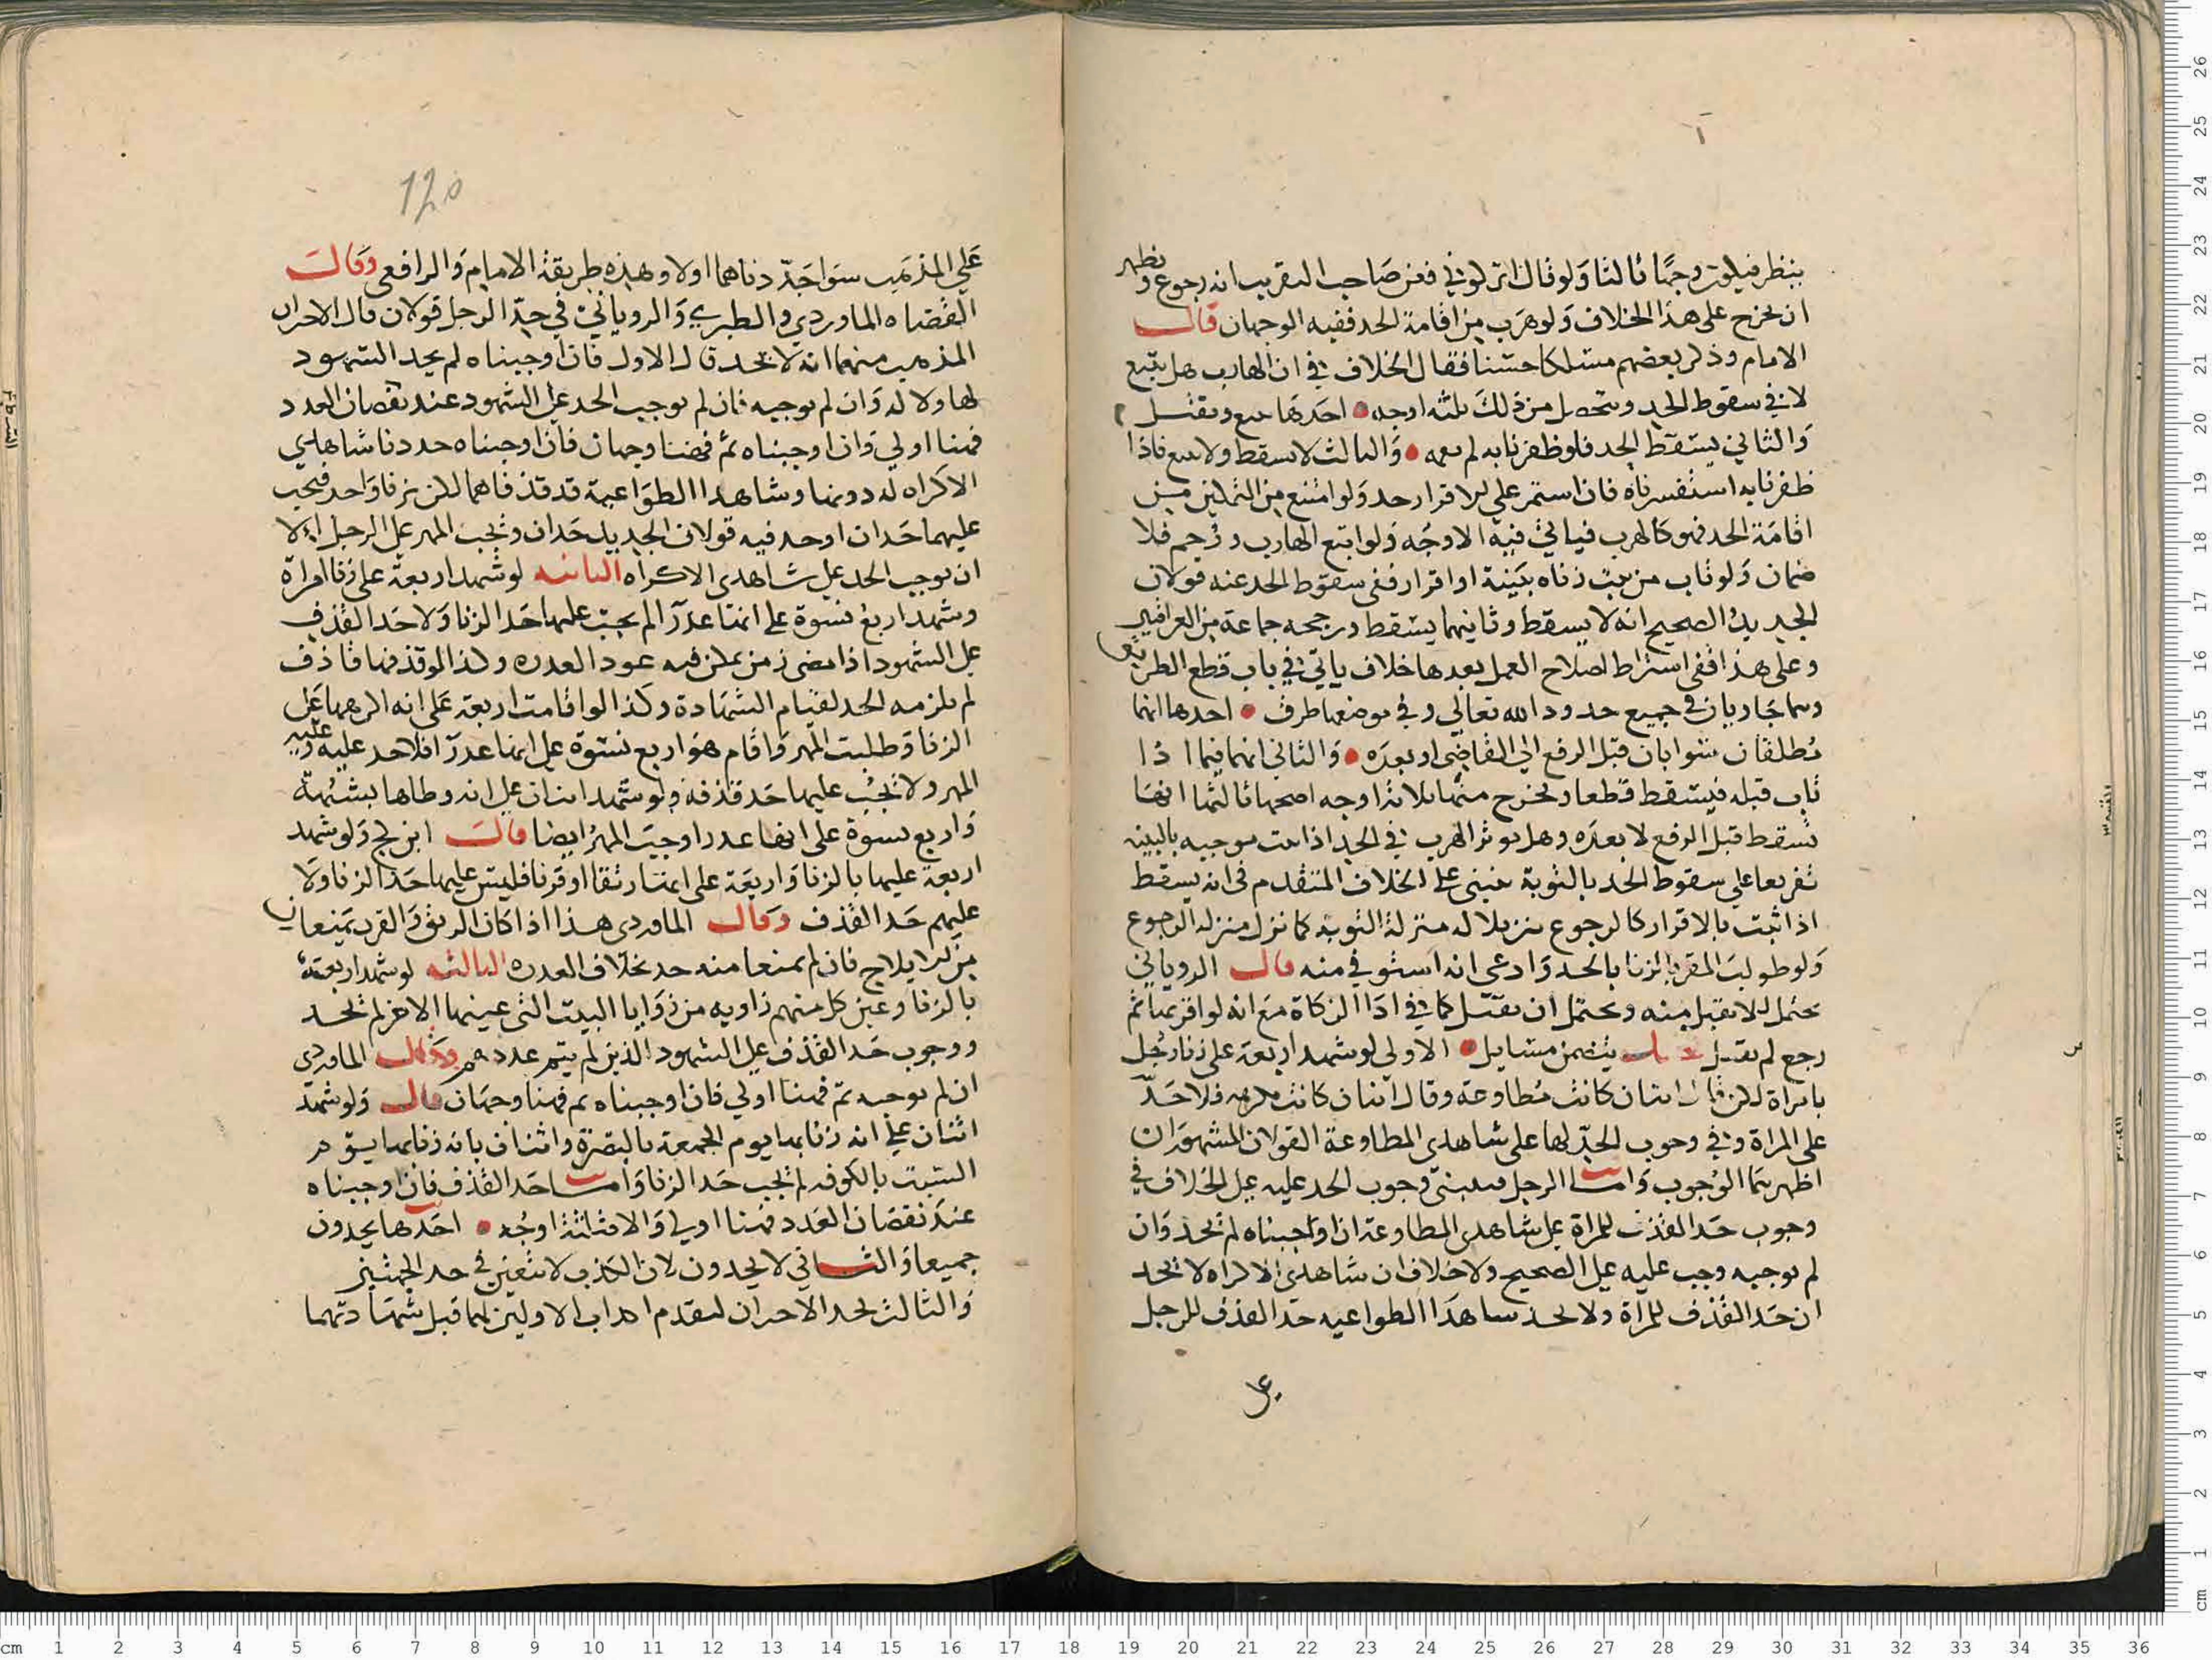 ينظر فيلون وجها ثالثا ولو قال اتركوني فعن صاحب التقريب انه رجوع ويظهر
ان يخرج على هذا الخلاف ولو هرب من اقامة الحد ففيه الوجهان قال
الامام وذكر بعضهم مسلكا حسنا فقال الخلاف في ان الهارب هل يتبع
لا في سقوط الحد ويتحصل من ذلك ثلثه اوجه احدها يتبع ويقتل
والثاني يسقط الحد فلو ظفرنا به لم نقمه والثالث لا يسقط ولا يتبع فاذا
ظفرنا به استفسرناه فان استمر على الاقرار حد ولو امتنع من التمكين من
اقامة الحد فهو كالهرب فياتي فيه الاوجه ولو اتبع الهارب ورجم فلا
ضمان ولو تاب من ثبت زناه ببينة او اقرار ففي سقوط الحد عنه قولان
الجديد الصحيح انه لا يسقط وثانيهما يسقط ورجحه جماعة من العراقيين
وعلى هذا ففي اشتراط اصلاح العمل بعدها خلاف ياتي في باب قطع الطريق
وهما جاريان في جميع حدود الله تعالى وفي موضعهما طرق احدها انهما
مطلقان سوا بان قبل الرفع الى القاضي او بعده والثاني انهما فيما اذا
تاب قبله فيسقط قطعا ويخرج منهما ثلاثة اوجه اصحها ثالثها انها
تسقط قبل الرفع لا بعده وهل يوثر الهرب في الحد اذا ثبت موجبه بالبينه
تفريعا على سقوط الحد بالتوبة ينبني على الخلاف المتقدم في انه يسقط
اذا ثبت بالاقرار كالرجوع تنزيلا له منزلة التوبة كما نزل منزلة الرجوع
ولو طولب المقر بالزنا بالحد وادعى انه استوفي منه قال الروياني
يحتمل لا يقبل منه ويحتمل ان يقبل كما في ادا الزكاة مع انه لو اقر بها ثم
رجع لم يقبل فصل يتضمن مسايل الاولى لو شهد اربعة على زنا رجل
بامراة لكن قال اثنان كانت مطاوعة وقال اثنان كانت مكرهه فلا حد
على المراة وفي وجوب الحد لها على شاهدي المطاوعة القولان المشهوران
اظهرهما الوجوب واما الرجل فينبني وجوب الحد عليه على الخلاف في
وجوب حد القذف للمراة على شاهدي المطاوعة ان اوجبناه لم يحد وان
لم نوجبه وجب عليه على الصحيح ولا خلاف ان شاهدي الاكراه لا يحد
ان حد القذف للمراة ولا يحد شاهدا الطواعيه حد القذف للرجل
على
١٢٥
على المذهب سوا حددناهما اولا وهذه طريقة الامام والرافعي وقال
القضاه الماوردي والطبري والروياني في حد الرجل قولان قال الاخران
المذهب منهما انه لا يحد قال الاول فان اوجبناه لم يحد الشهود
لها ولا له وان لم نوجبه فان لم نوجب الحد على الشهود عند نقصان العدد
فهنا اولى وان اوجبناه ثم فههنا وجهان فان اوجبناه حددنا شاهدي
الاكراه له دونها وشاهدا الطواعية قد قذفاهما لكن بزنا واحد فيجب
عليهما حدان او حد فيه قولان الجديد حدان ويجب المهر على الرجل الا
ان نوجب الحد على شاهدي الاكراه الثانيه لو شهد اربعة على زنا امراة
وشهد اربع نسوة على انها عذرا لم يجب عليها حد الزنا ولا حد القذف
على الشهود اذا مضى زمن يمكن فيه عود العذره وكذا لو قذفها قاذف
لم يلزمه الحد لقيام الشهادة وكذا لو اقامت اربعة على انه اكرهها على
الزنا وطلبت المهر واقام هو اربع نسوة على انها عذرا فلا حد عليه وعليه
المهر ولا يجب عليها حد قذفه ولو شهد اثنان على انه وطاها بشبهة
واربع نسوة على انها عذرا وجب المهر ايضا قال ابن كج ولو شهد
اربعة عليها بالزنا واربعة على انها رتقا او قرنا فليس عليها حد الزنا ولا
عليهم حد القذف وقال الماوردي هذا اذا كان الرتق والقرن يمنعان
من الايلاج فان لم يمنعا منه حد بخلاف العذره الثالثه لو شهد اربعة
بالزنا وعين كل منهم زاويه من زوايا البيت التي عينها الاخر لم يحد
ووجوب حد القذف على الشهود الذين لم يتم عددهم وقال الماوردي
ان لم نوجبه ثم فهنا اولى فان اوجبناه ثم فهنا وجهان قال ولو شهد
اثنان على انه زنا بها يوم الجمعة بالبصرة واثنان بانه زنا بها يوم
السبت بالكوفه لم يجب حد الزنا واما حد القذف فان اوجبناه
عند نقصان العدد فهنا اولى والا فثلثة اوجه احدها يحدون
جميعا والثاني لا يحدون لان الكذب لا يتعين في حد الجهتين
والثالث يحد الاخران لتقدم اكذاب الاولين لهما قبل شهادتهما